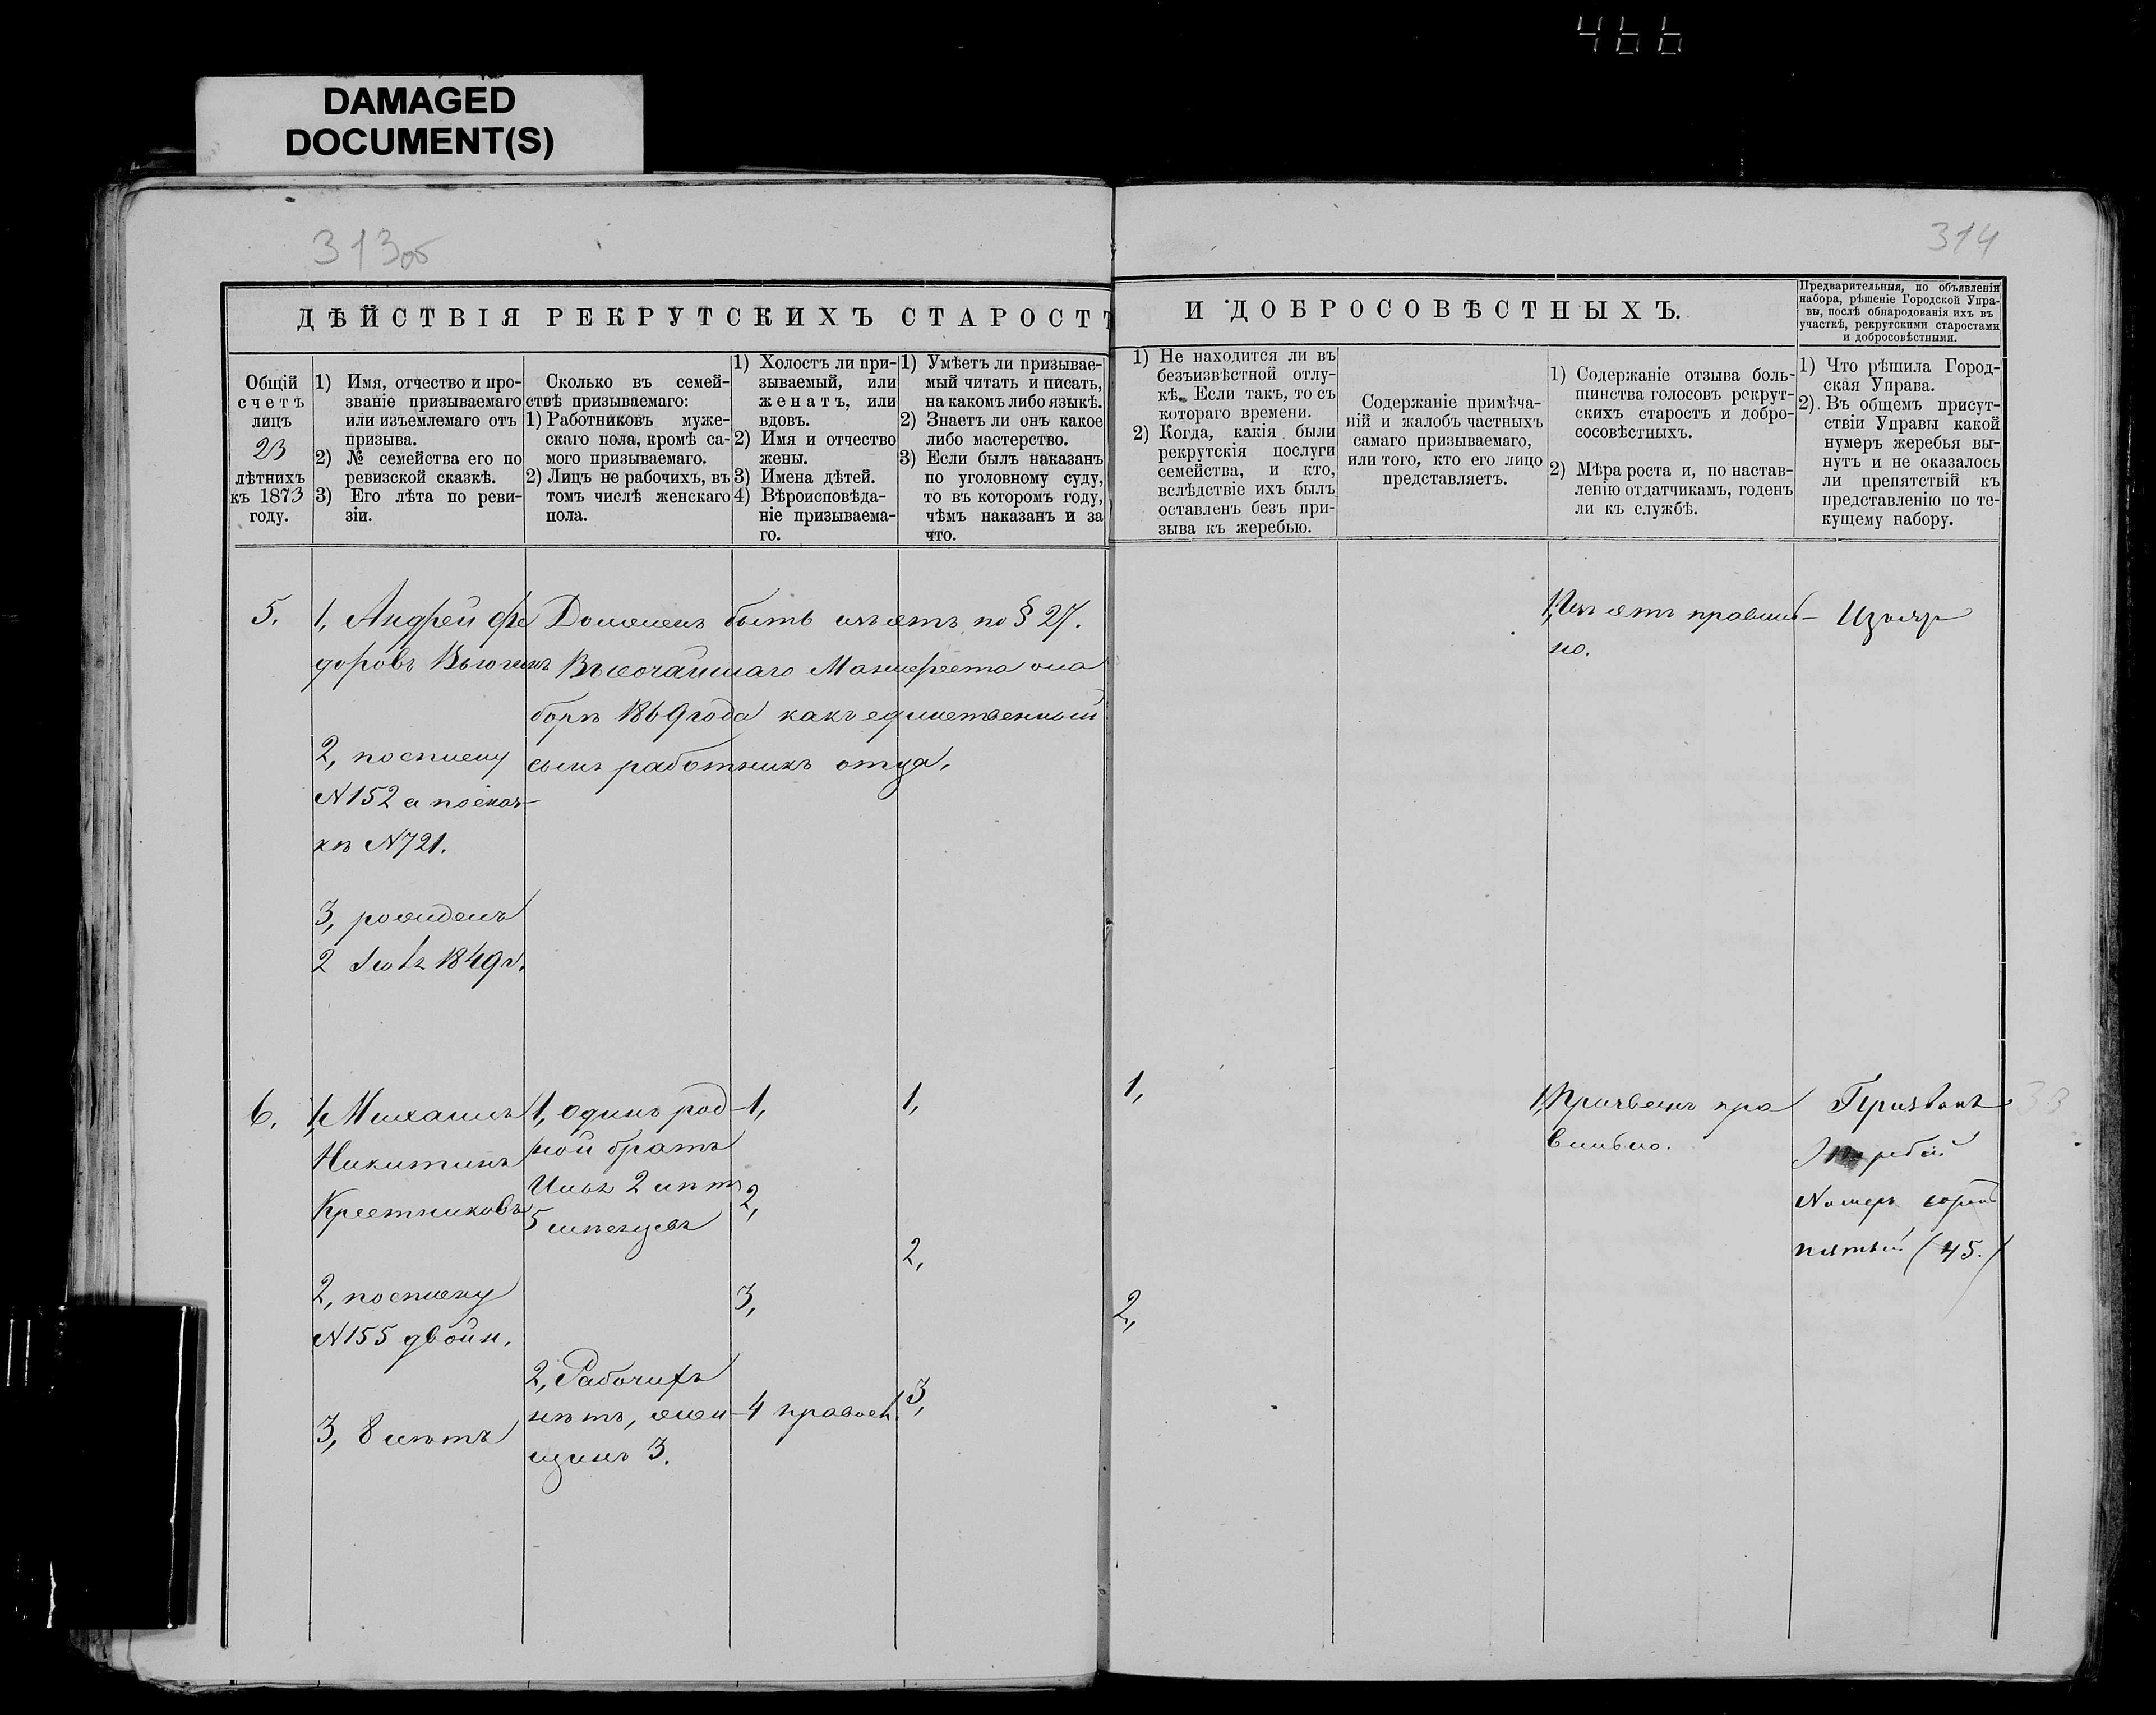 466
DAMAGED
DOCUMENT(S)
313об
314
ДѢЙСТВІЯ РЕКРУТСКИХЪ СТАРОСТЪ
И ДОБРОСОВѢСТНЫХЪ.
Предварительныя, по объявленіи
набора, рѣшеніе Городской Упра-
вы, послѣ обнародованія ихъ въ
участкѣ, рекрутскими старостами
и добросовѣстными.
Общій
счетъ
лицъ
23
лѣтнихъ
къ 1873
году.
1) Имя, отчество и про-
званіе призываемаго
или изъемлемаго отъ
призыва.
2) № семейства его по
ревизской сказкѣ.
3) Его лѣта по реви-
зіи.
Сколько въ семей-
ствѣ призываемаго:
1) Работниковъ муже-
скаго пола, кромѣ са-
мого призываемаго.
2) Лицъ не рабочихъ, въ
томъ числѣ женскаго
пола.
1) Холостъ ли при-
зываемый, или
женатъ, или
вдовъ.
2) Имя и отчество
жены.
3) Имена дѣтей.
4) Вѣроисповѣда-
ніе призываема-
го.
1) Умѣетъ ли призывае-
мый читать и писать,
на какомъ либо языкѣ.
2) Знаетъ ли онъ какое
либо мастерство.
3) Если былъ наказанъ
по уголовному суду,
то въ которомъ году,
чѣмъ наказанъ и за
что.
1) Не находится ли въ
безъизвѣстной отлу-
кѣ. Если такъ, то съ
котораго времени.
2) Когда, какія были
рекрутскія послуги
семейства, и кто,
вслѣдствіе ихъ былъ
оставленъ безъ при-
зыва къ жеребью.
Содержаніе примѣча-
ній и жалобъ частныхъ
самаго призываемаго,
или того, кто его лицо
представляетъ.
1) Содержаніе отзыва боль-
шинства голосовъ рекрут-
скихъ старостъ и добро-
сосовѣстныхъ.
2) Мѣра роста и, по настав-
ленію отдатчикамъ, годенъ
ли къ службѣ.
1) Что рѣшила Город-
ская Управа.
2) Въ общемъ присут-
ствіи Управы какой
нумеръ жеребья вы-
нутъ и не оказалось
ли препятствій къ
представленію по те-
кущему набору.
5.
1, Андрей Фе
доровъ Вьюгинъ
2, посписку
N152 а посказ-
кѣ N721.
3, рожденъ
1849г.
Долженъ быть изъятъ по § 27.
Высочайшаго Манифеста о на
борѣ 1869 года какъ единственный
сынъ работникъ отца.
1, Изъятъ правиль-
но.
Изъят
6.
1, Михаилъ
Никитинъ
Крестниковъ
2, посписку
N155 двойн.
3, 8 лѣтъ
1, одинъ род-
ной братъ
Илья 2 лѣтъ
5 мѣсяцевъ
2, Рабочихъ
нѣтъ, жен-
щинъ 3.
1,
2,
3,
4 правосл.
1,
2,
3,
1,
2,
1, Призванъ пра
вильно.
Призванъ
Жребій
Номеръ сорокъ
пятый (45.)